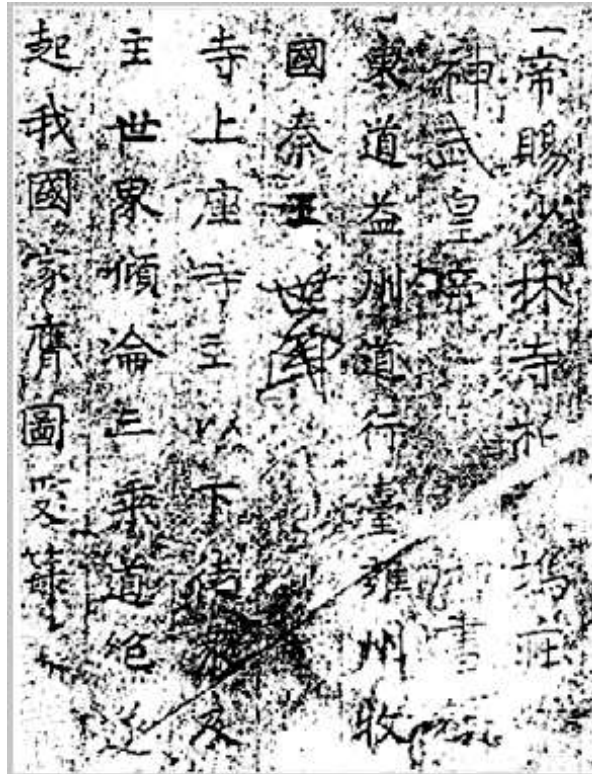 帝賜少林寺柏塢莊
神武皇帝書
東道益州道行臺雍州牧
國秦王世民
寺上座寺主以下徒衆
主世界傾淪三乘道絕
起我國家膺圖受籙